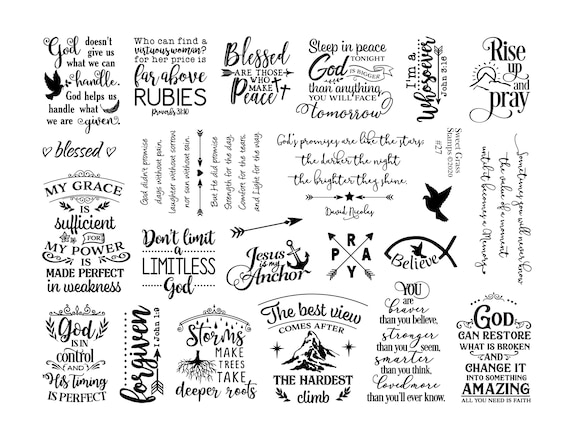 God doesn't
give us
what we can
handle.
God helps us
handle what
we are given.
Who can find a
virtuous woman?
for her price is
far above
RUBIES
Proverbs 31:10
Blessed
ARE THOSE
WHO
MAKE
Peace
Sleep in peace
TONIGHT
God IS BIGGER
than anything
YOU WILL FACE
Tomorrow
I'm a
Whosoever
John 3:16
Rise
up and
pray
blessed
God didn't promise
days without pain,
laughter without sorrow
nor sun without rain.
But He did promise
Strength for the day,
Comfort for the tears,
and Light for the way.
God's promises are like the stars;
the darker the night
the brighter they shine.
David Nicolas
Sweet Grass
Stamps ©2020
#27
Sometimes you will never know
the value of a moment
until it becomes a Memory.
MY GRACE
IS
sufficient
FOR
MY POWER
IS
MADE PERFECT
in weakness
Don't limit
a
LIMITLESS
God
Jesus
is my
Anchor
P
R
A
Y
Believe
YOU
are
braver
than you believe,
stronger
than you seem,
smarter
than you think,
loved more
than you'll ever know.
God
IS IN
control
AND
His Timing
IS PERFECT
forgiven
1 John 1:9
Storms
MAKE
TREES
TAKE
deeper roots
The best view
COMES AFTER
THE HARDEST
climb
GOD
CAN RESTORE
WHAT IS BROKEN
AND
CHANGE IT
INTO SOMETHING
AMAZING
ALL YOU NEED IS FAITH